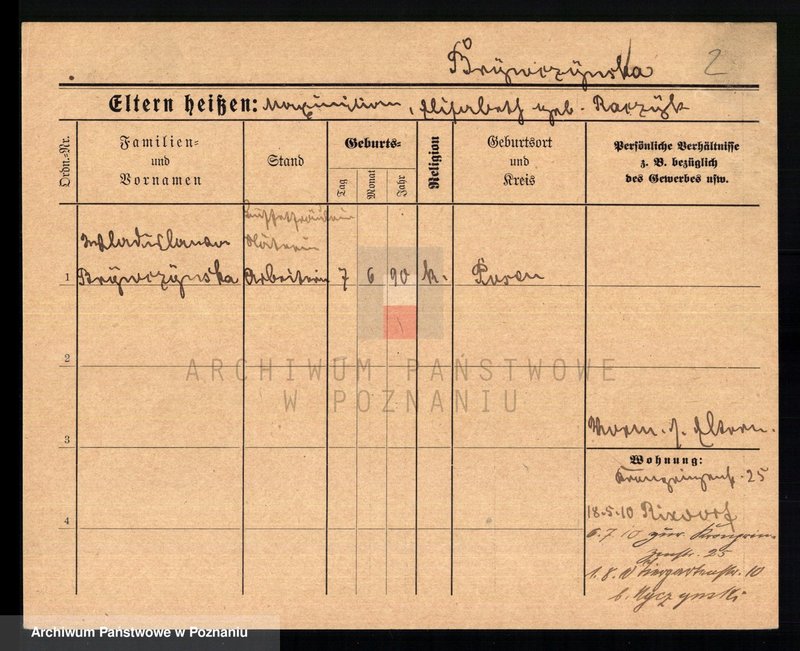 Brywczynska
2
Eltern heißen: Maximilian, Elisabeth geb. Raczyk
Ordn.-Nr.
Familien-
und
Vornamen
Stand
Geburts-
Tag
Monat
Jahr
Religion
Geburtsort
und
Kreis
Persönliche Verhältnisse
z. B. bezüglich
des Gewerbes usw.
Büffetfräulein
Wladislawa
Näterin
1
Brywczynska
Arbeiterin
7
6
90
k.
Posen
2
ARCHIWUM PAŃSTWOWE
W POZNANIU
3
Vorm. s. Eltern.
Wohnung:
Kronprinzenstr. 25
4
18.5.10 Rixdorf
6.7.10 zur. Kronprin-
zenstr. 25
1.8.10 Tiergartenstr. 10
b.
Archiwum Państwowe w Poznaniu